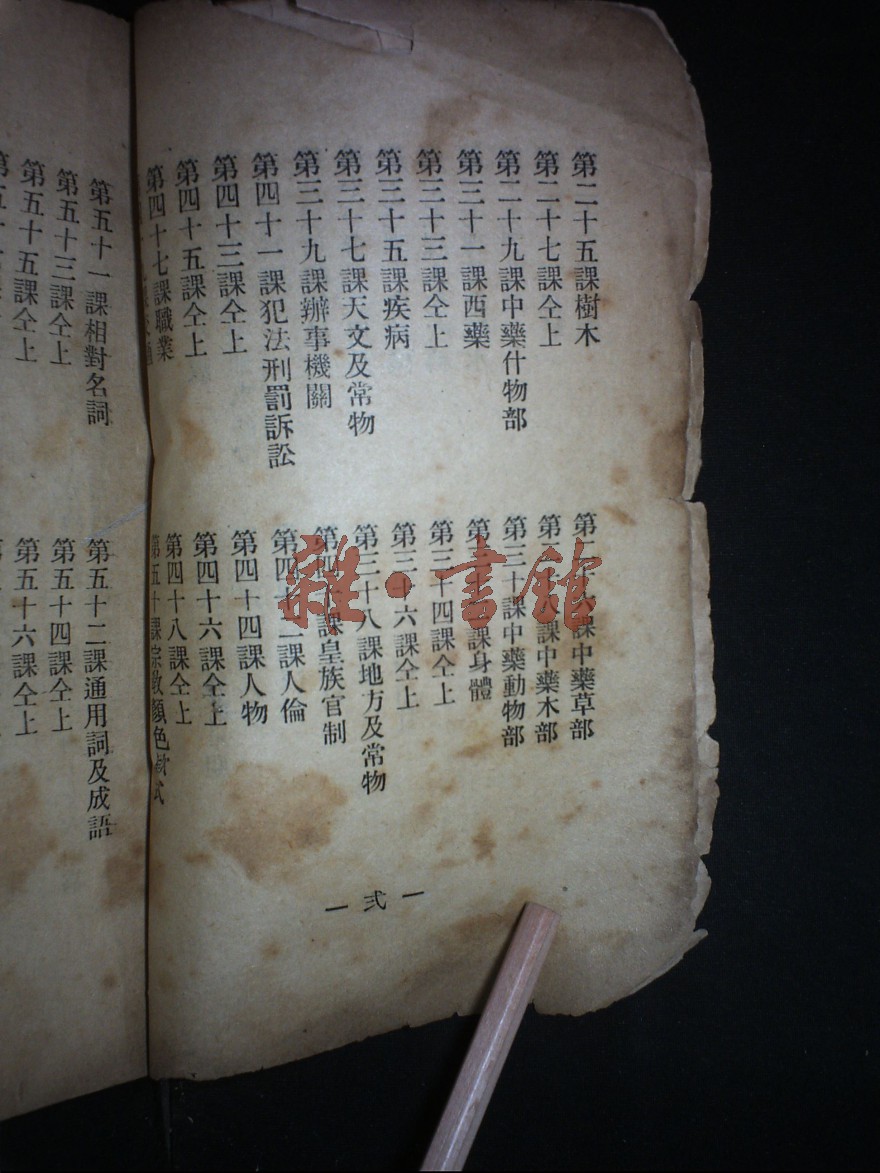 第二十五課樹木
第二十六課中藥草部
第二十七課仝上
第二十八課中藥木部
第二十九課中藥什物部
第三十課中藥動物部
第三十一課西藥
第三十二課身體
第三十三課仝上
第三十四課仝上
第三十五課疾病
第三十六課仝上
第三十七課天文及常物
第三十八課地方及常物
第三十九課辦事機關
第四十課皇族官制
第四十一課犯法刑罰訴訟
第四十二課人倫
第四十三課仝上
第四十四課人物
第四十五課仝上
第四十六課仝上
第四十七課職業
第四十八課仝上
第五十課宗教顏色
— 弍 —
第五十一課相對名詞
第五十二課通用詞及成語
第五十三課仝上
第五十四課仝上
第五十五課仝上
第五十六課仝上
雜·書館